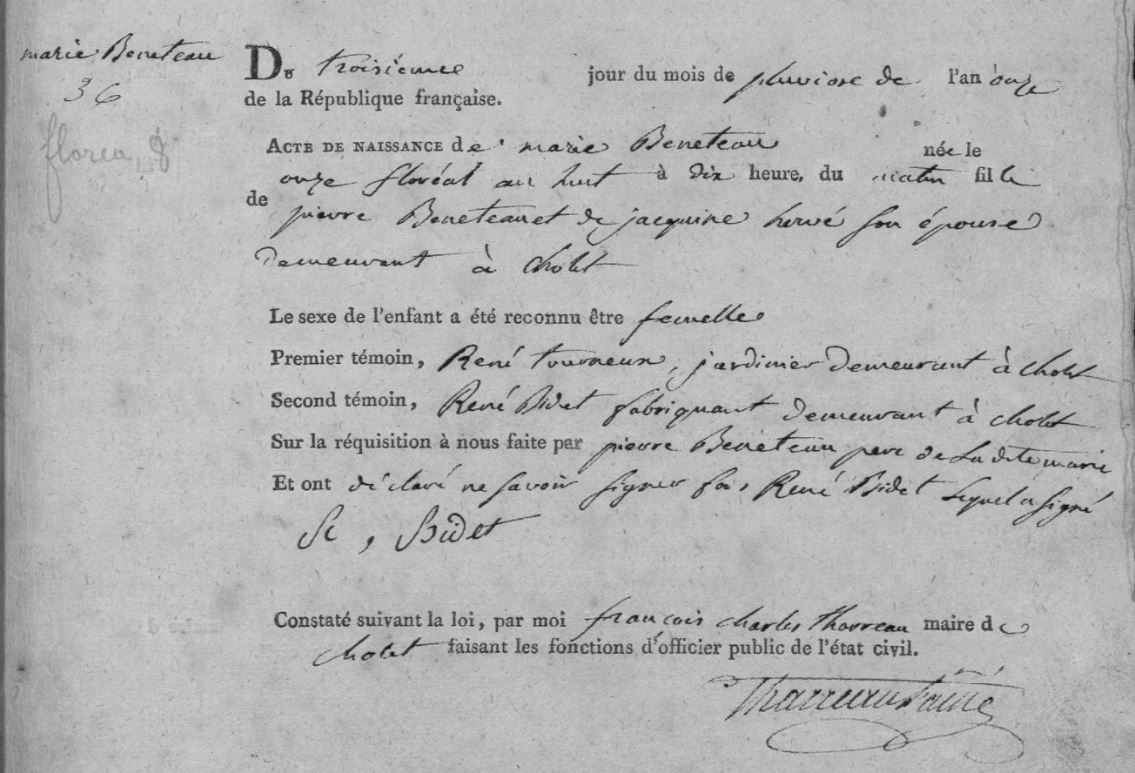 marie Beneteau
36
floreal 8
Du troisieme jour du mois de pluviose de l'an onze
de la République française.
ACTE DE NAISSANCE de marie Beneteau née le
onze floréal an huit à dix heure, du matin fille
de pierre Beneteau et de jacquine hervé son épouse
demeurant à cholet
Le sexe de l'enfant a été reconnu être femelle
Premier témoin, René tourneux, jardinier demeurant à cholet
Second témoin, René Bidet fabriquant demeurant à cholet
Sur la réquisition à nous faite par pierre Beneteau pere de la dite marie
Et ont déclaré ne savoir signer René Bidet lequel a signé
Bidet
Constaté suivant la loi, par moi françois charles tharreau maire de
cholet faisant les fonctions d'officier public de l'état civil.
Tharreau l'ainé